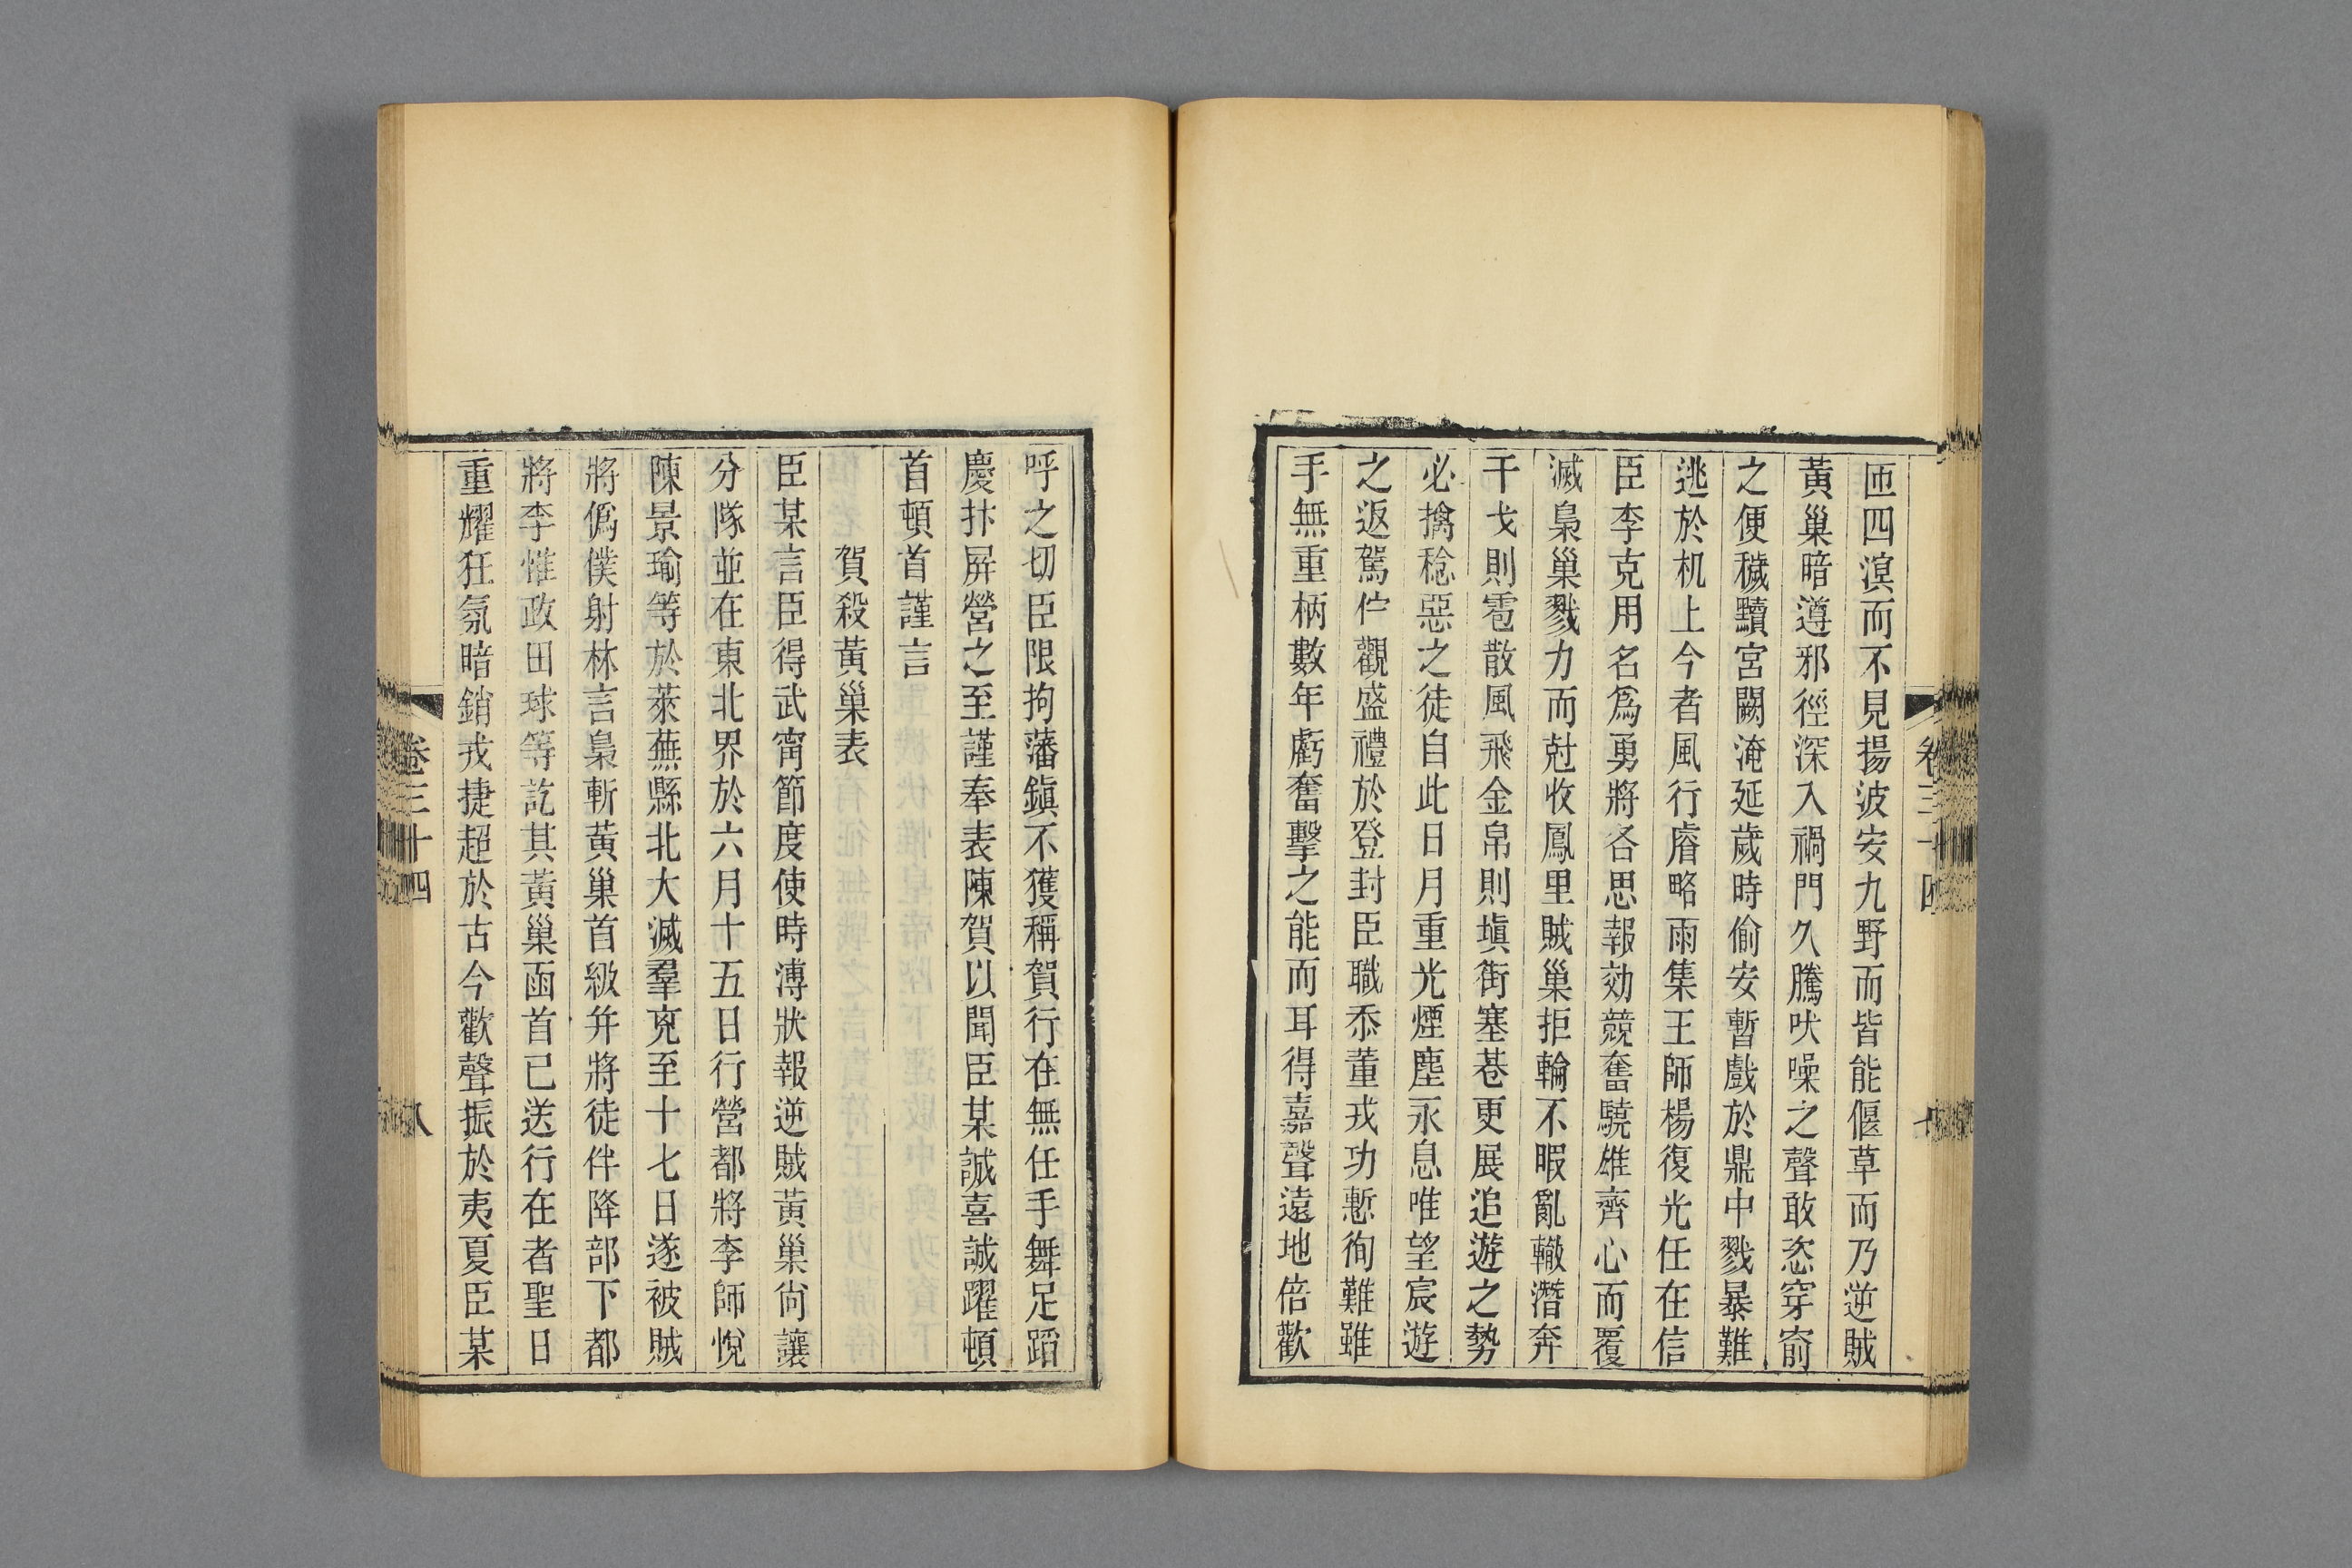 匝四溟而不見揚波安九野而皆能偃草而乃逆賊
黃巢暗遵邪徑深入禍門久騰吠噪之聲敢恣穿窬
之便穢黷宮闕淹延歲時偷安暫戲於鼎中戮暴難
逃於机上今者風行睿略雨集王師楊復光任在信
臣李克用名爲勇將各思報効競奮驍雄齊心而覆
滅梟巢戮力而尅收鳳里賊巢拒輪不暇亂轍潛奔
干戈則雹散風飛金帛則塡街塞巷更展追遊之勢
必擒稔惡之徒自此日月重光煙塵永息唯望宸遊
之返駕伫觀盛禮於登封臣職忝董戎功慙徇難雖
手無重柄數年虧奮擊之能而耳得嘉聲遠地倍歡
呼之切臣限拘藩鎭不獲稱賀行在無任手舞足蹈
慶抃屛營之至謹奉表陳賀以聞臣某誠喜誠躍頓
首頓首謹言
賀殺黃巢表
臣某言臣得武甯節度使時溥狀報逆賊黃巢尙讓
分隊並在東北界於六月十五日行營都將李師悅
陳景瑜等於萊蕪縣北大滅羣兇至十七日遂被賊
將僞僕射林言梟斬黃巢首級幷將徒伴降部下都
將李惟政田球等訖其黃巢函首已送行在者聖日
重耀狂氛暗銷戎捷超於古今歡聲振於夷夏臣某
卷三十四
八